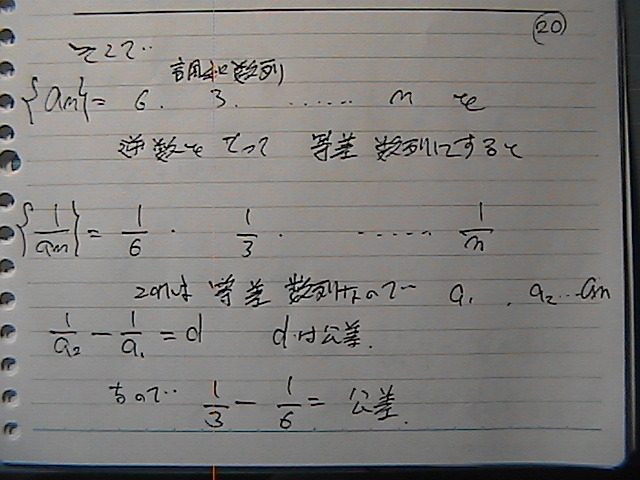 ⑳
そこで‥
調和数列
{an} = 6. 3. ‥‥‥ n を
逆数をとって 等差数列にすると
{1/an} = 1/6 . 1/3 . ‥‥‥ 1/n
これは 等差数列なので a1 , a2 … an
1/a2 − 1/a1 = d dは公差.
なので‥ 1/3 − 1/6 = 公差.